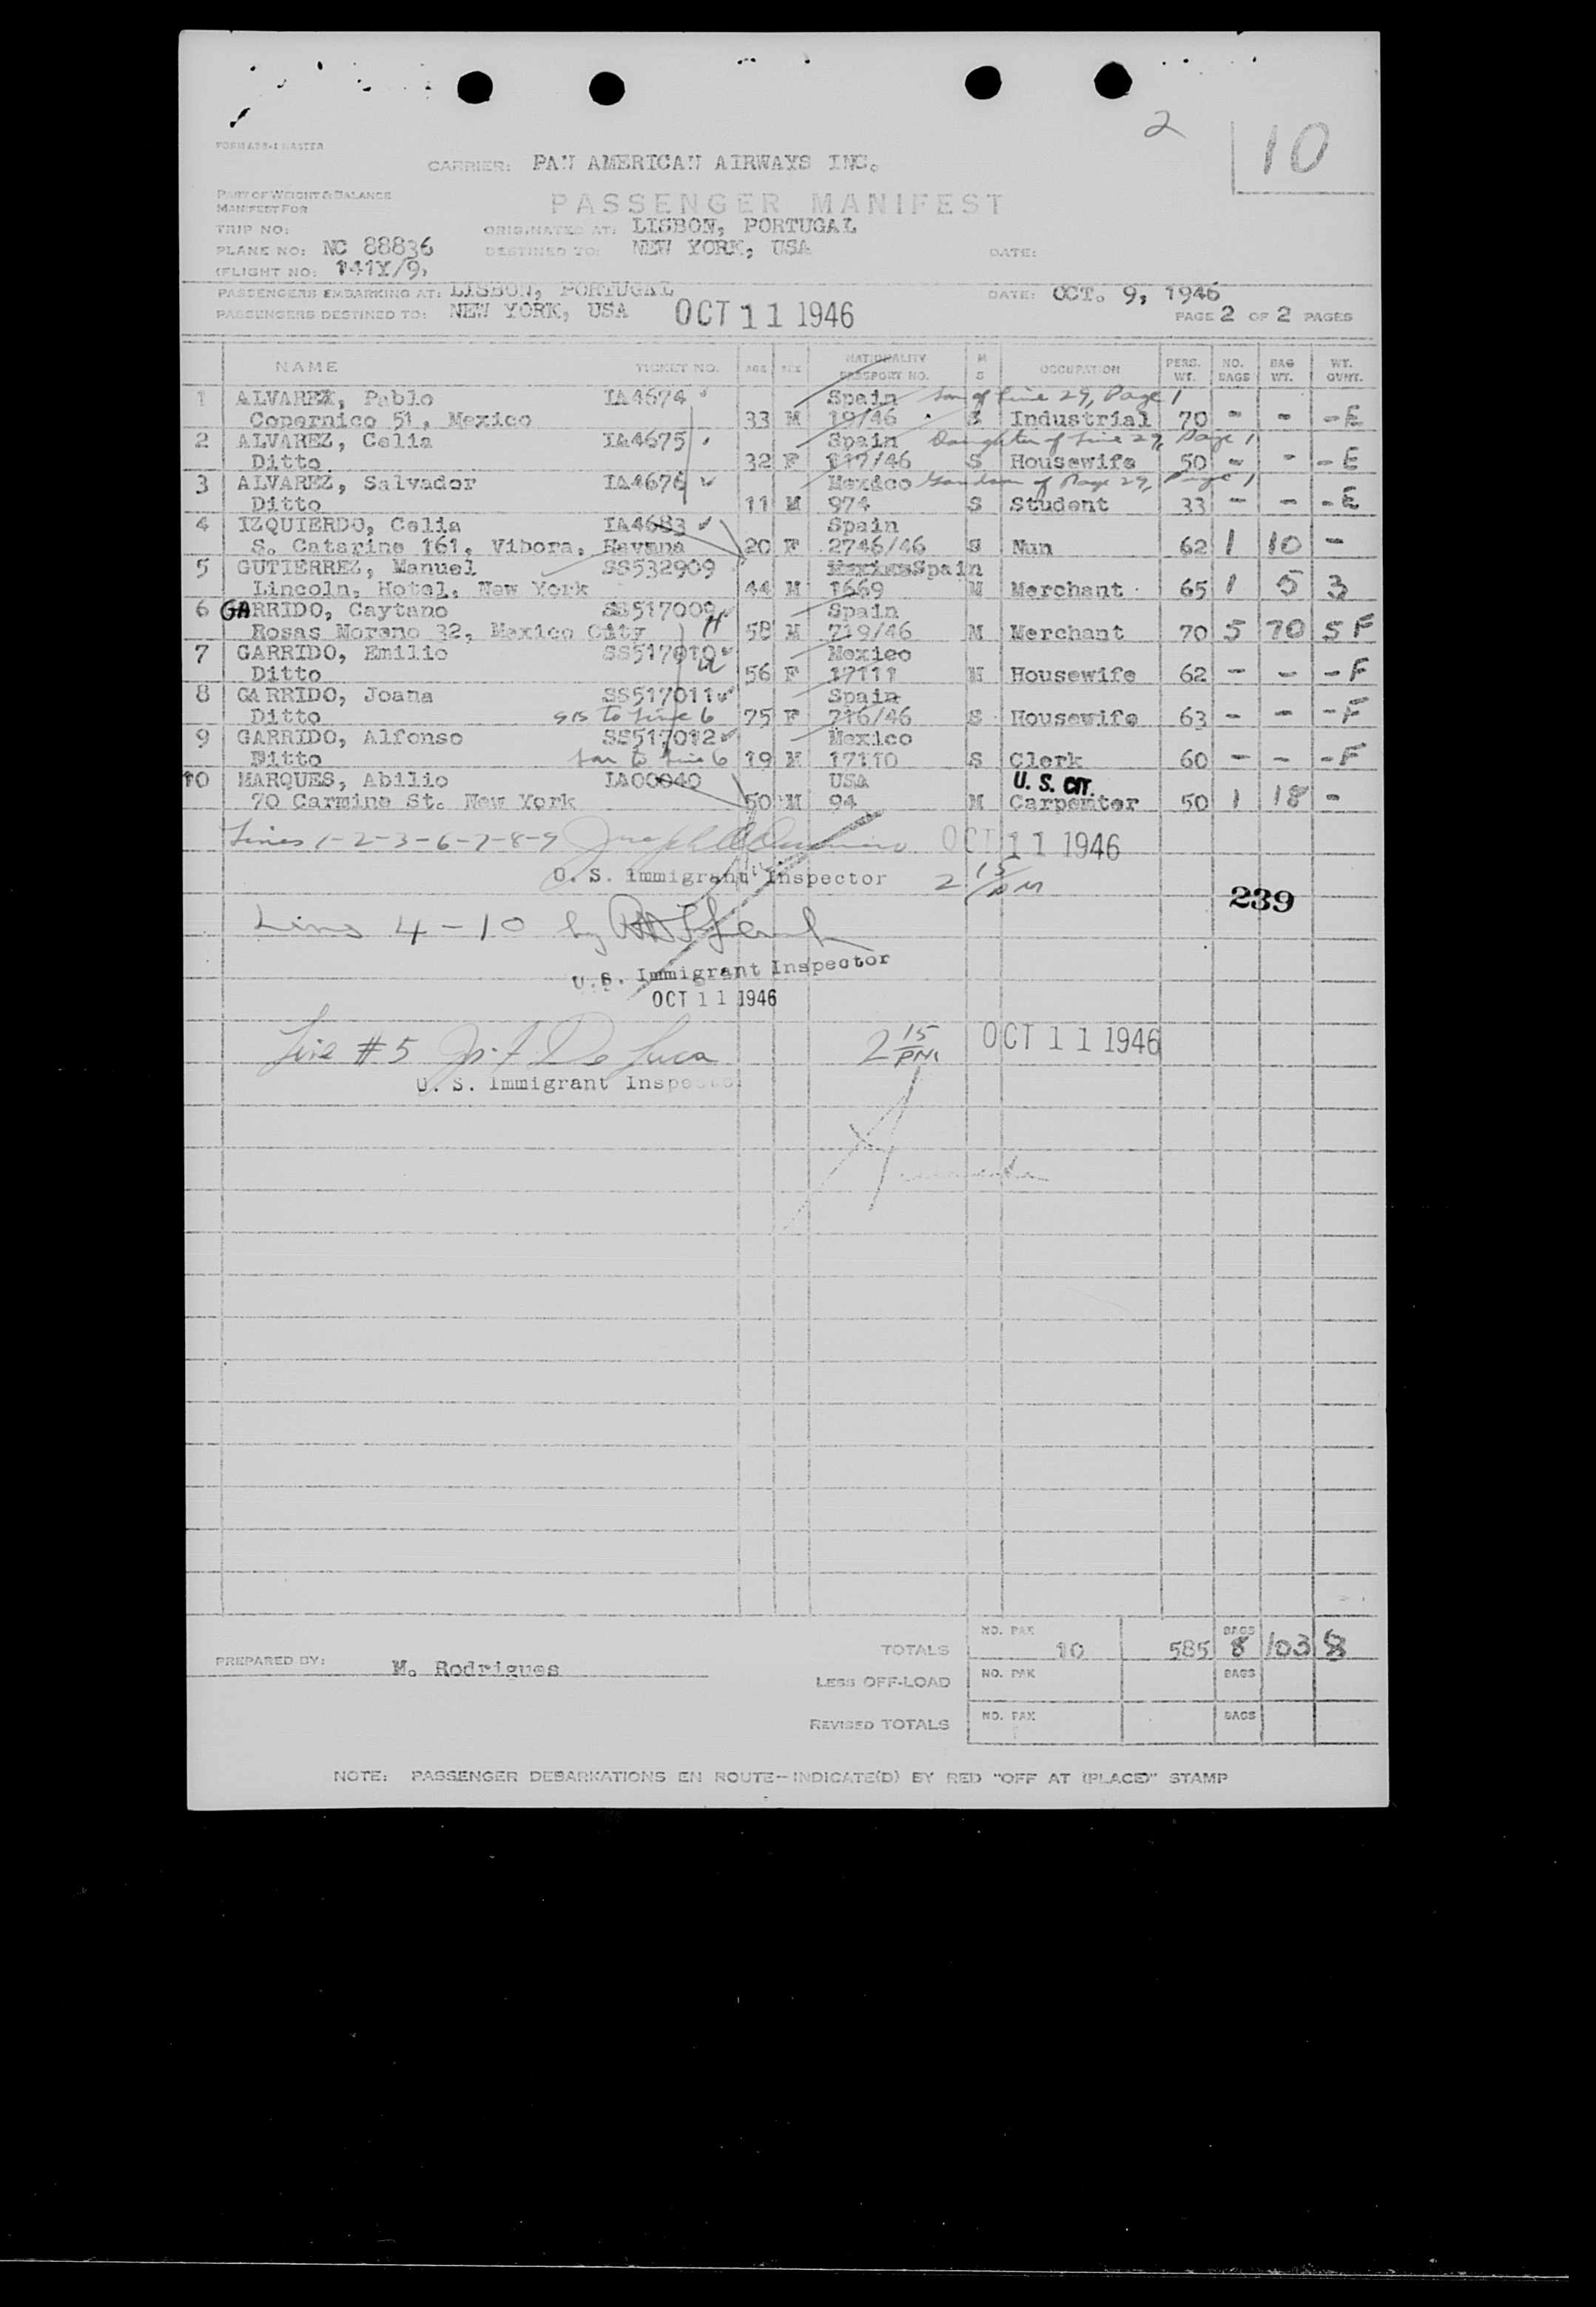 2
10
FORM ABS-1 MASTER
CARRIER: PAN AMERICAN AIRWAYS INC.
PART OF WEIGHT & BALANCE
MANIFEST FOR
PASSENGER MANIFEST
TRIP NO: ORIGINATED AT: LISBON, PORTUGAL
PLANE NO: NC 88836 DESTINED TO: NEW YORK, USA DATE:
(FLIGHT NO: 141Y/9)
PASSENGERS EMBARKING AT: LISBON, PORTUGAL DATE: OCT. 9, 1946
PASSENGERS DESTINED TO: NEW YORK, USA OCT 11 1946 PAGE 2 OF 2 PAGES
NAME TICKET NO. AGE SEX NATIONALITY PASSPORT NO. M S OCCUPATION PERS. WT. NO. BAGS BAG WT. WT. OVHT.
1 ALVAREZ, Pablo IA4674 Spain Son of Line 29, Page 1
Copernico 51, Mexico 33 M 19/46 S Industrial 70 - - - E
2 ALVAREZ, Celia IA4675 Spain Daughter of Line 29, Page 1
Ditto 32 F 117/46 S Housewife 50 - - - E
3 ALVAREZ, Salvador IA4676 Mexico Grandson of Page 29, Page 1
Ditto 11 M 974 S Student 33 - - - E
4 IZQUIERDO, Celia IA4683 Spain
S. Catarine 161, Vibora, Havana 20 F 2746/46 S Nun 62 1 10 -
5 GUTIERREZ, Manuel SS532909 Spain
Lincoln, Hotel, New York 44 M 1669 M Merchant 65 1 5 3
6 GARRIDO, Caytano SS517009 Spain
Rosas Moreno 32, Mexico City H 58 M 719/46 M Merchant 70 5 70 5 F
7 GARRIDO, Emilio SS517010 Mexico
Ditto W 56 F 17111 M Housewife 62 - - - F
8 GARRIDO, Joana SS517011 Spain
Ditto sis to Line 6 75 F 716/46 S Housewife 63 - - - F
9 GARRIDO, Alfonso SS517012 Mexico
Ditto Son to Line 6 19 M 17110 S Clerk 60 - - - F
10 MARQUES, Abilio IA00040 USA U. S. CIT.
70 Carmine St. New York 50 M 94 M Carpenter 50 1 18 -
Lines 1-2-3-6-7-8-9 OCT 11 1946
U. S. Immigrant Inspector 2 15 PM
239
Lines 4-10 by
U. S. Immigrant Inspector
OCT 11 1946
Line #5 De Luca 2 15 PM OCT 11 1946
U. S. Immigrant Inspector
TOTALS NO. PAX 10 585 BAGS 8 103 8
PREPARED BY: M. Rodrigues
LESS OFF-LOAD NO. PAX BAGS
REVISED TOTALS NO. PAX BAGS
NOTE: PASSENGER DEBARKATIONS EN ROUTE-INDICATE(D) BY RED "OFF AT (PLACE)" STAMP